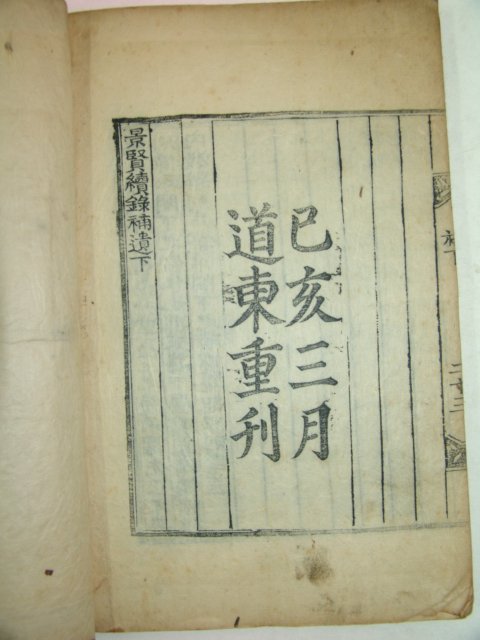 己亥三月
道東重刊
景賢續錄補遺下
補下
二十三